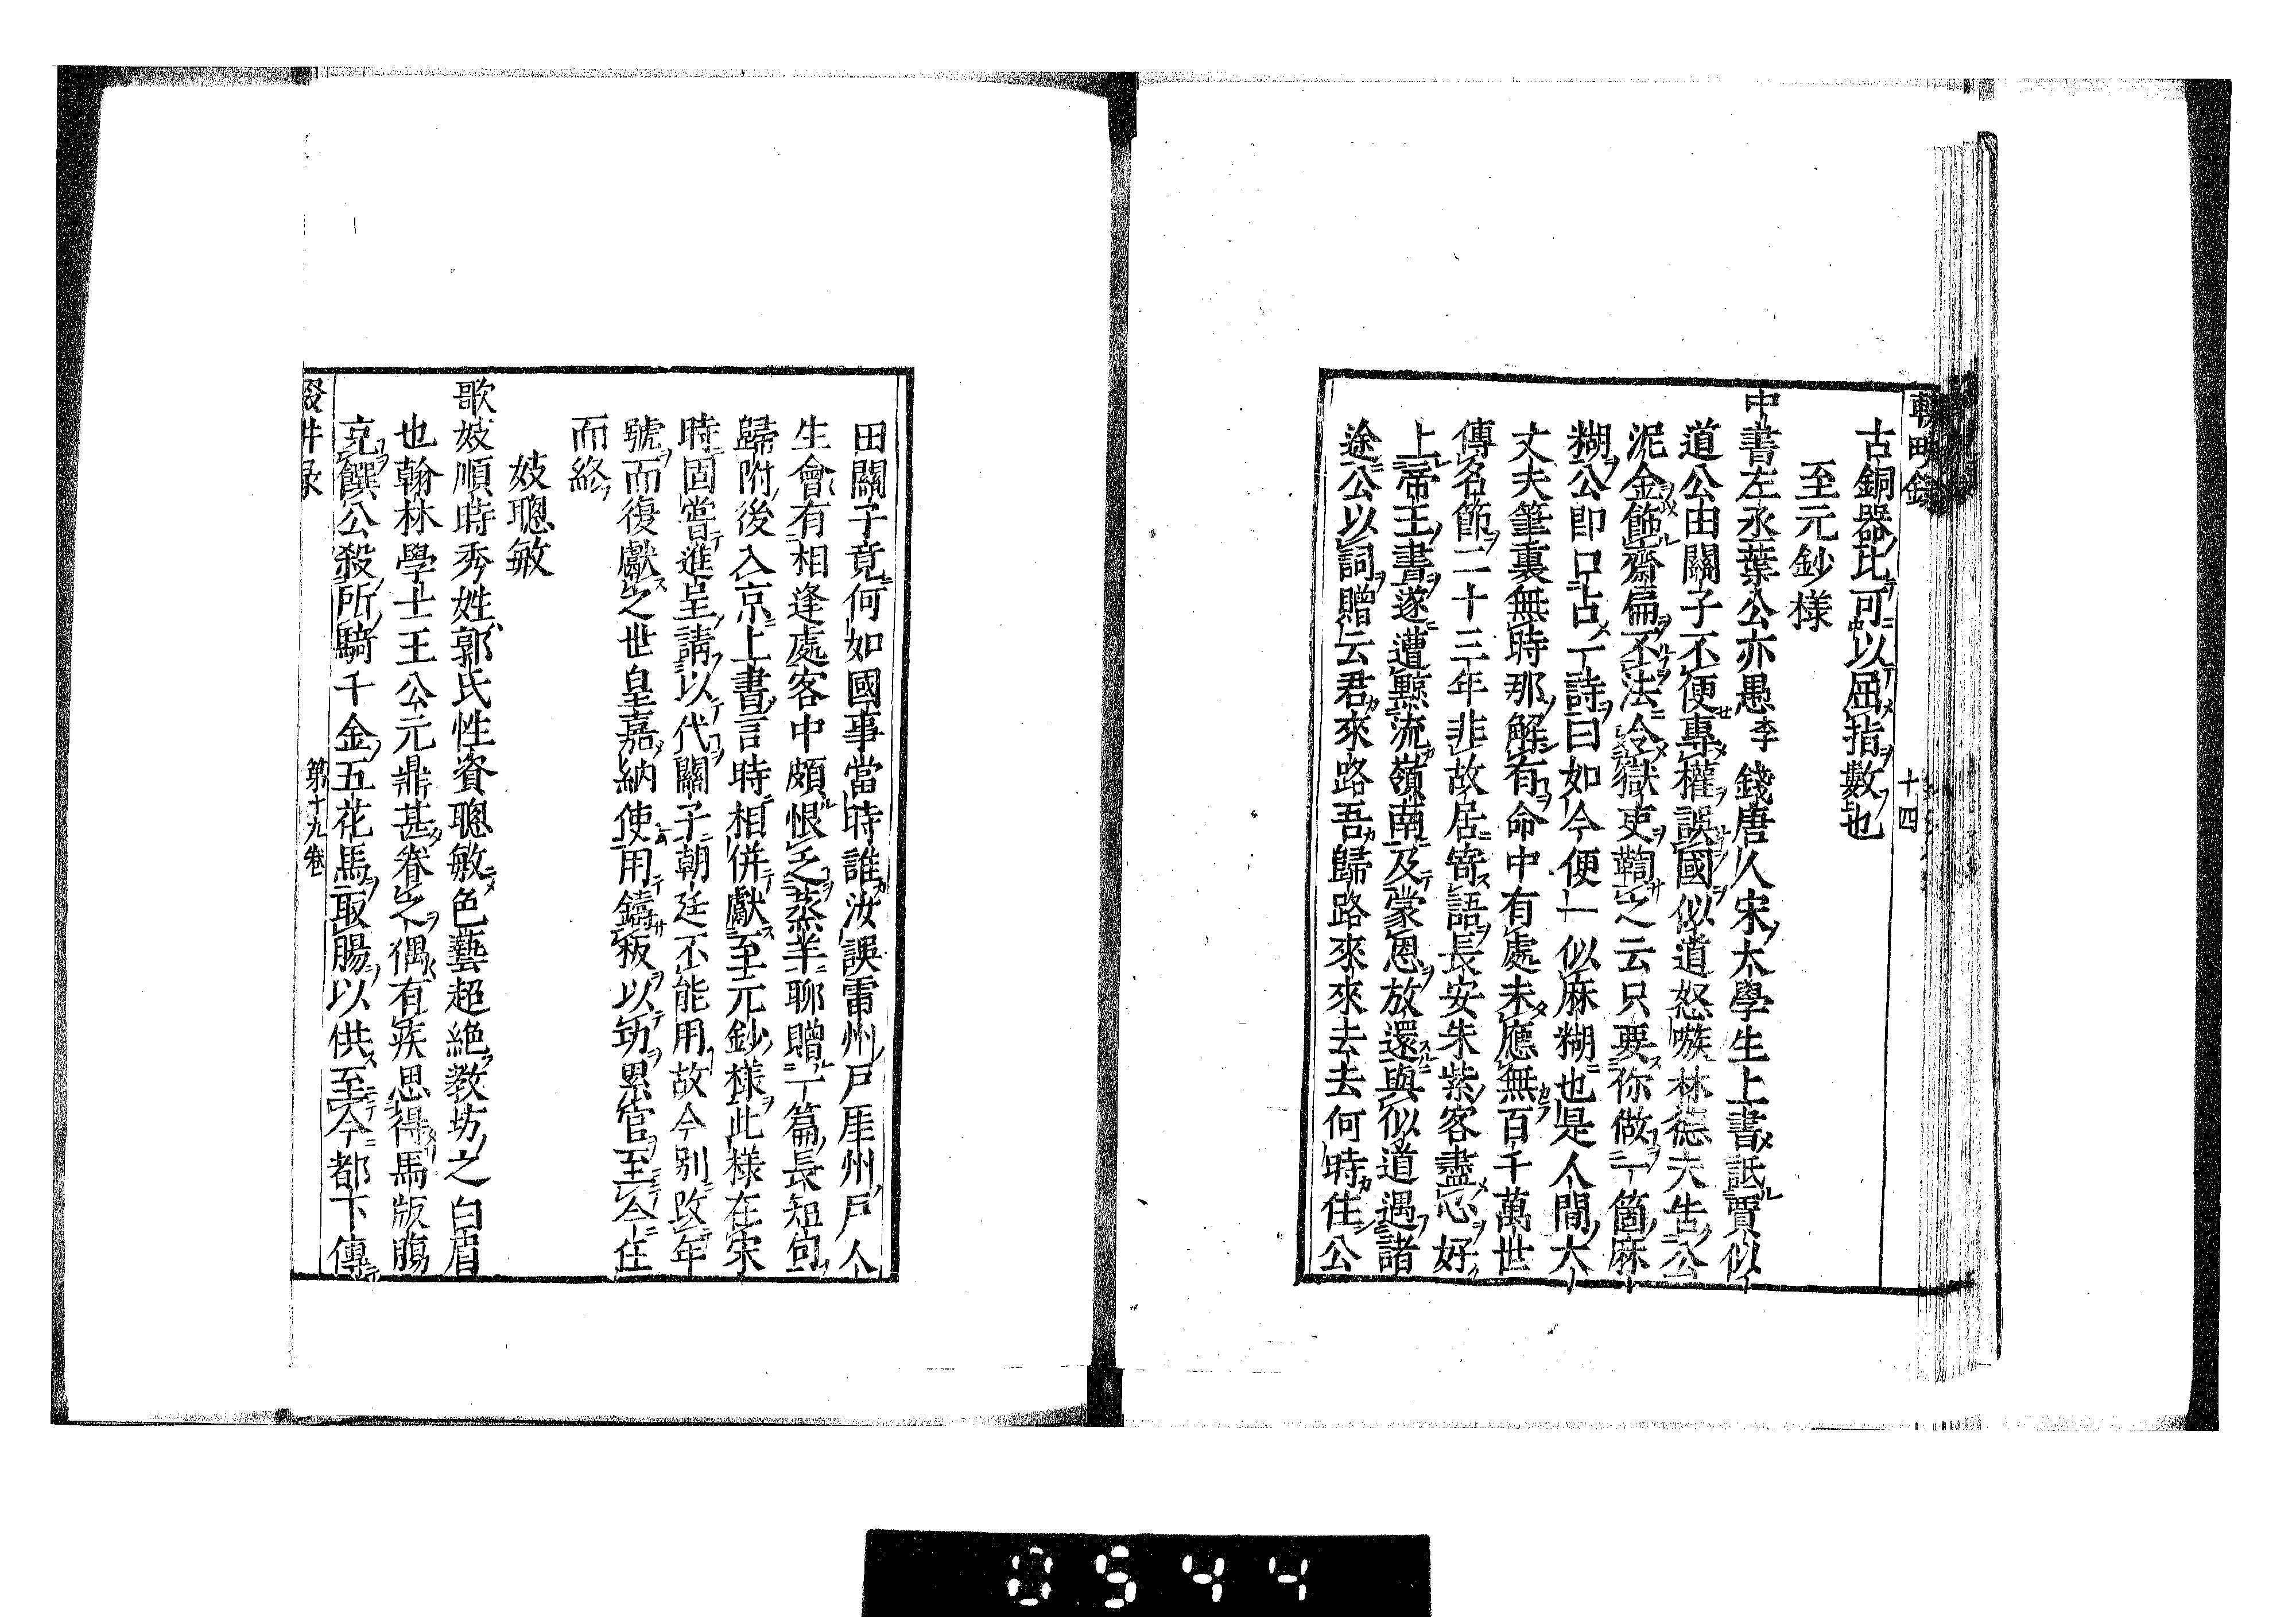 輟畊錄
十四
古銅器比可以屈指數也
至元鈔樣
中書左丞葉公亦愚李錢唐人宋太學生上書詆賈似
道公田關子不便專權誤國似道怒嗾林德夫告公
泥金飾齋扁不法令獄吏鞫之云只要你做一箇麻
糊公卽口占一詩曰如今便一似麻糊也是人間大
丈夫筆裏無時那解有命中有處未應無百千萬世
傳名節二十三年非故居寄語長安朱紫客盡心好
上帝王書遂遭黥流嶺南及蒙恩放還與似道遇諸
途公以詞贈云君來路吾歸路來來去去何時住公
田關子竟何如國事當時誰汝誤雷州戶厓州戶人
生會有相逢處客中頗恨乏蒸羊聊贈一篇長短句
歸附後入京上書言時相併獻至元鈔樣此樣在宋
時固嘗進呈請以代關子朝廷不能用故今別改年
號而復獻之世皇嘉納使用鑄板以功累官至今任
而終
妓聰敏
歌妓順時秀姓郭氏性資聰敏色藝超絕教坊之白眉
也翰林學士王公元鼎甚眷之偶有疾思得馬版膓
克饌公殺所騎千金五花馬取腸以供至今都下傳
輟畊录
第十九卷
0544